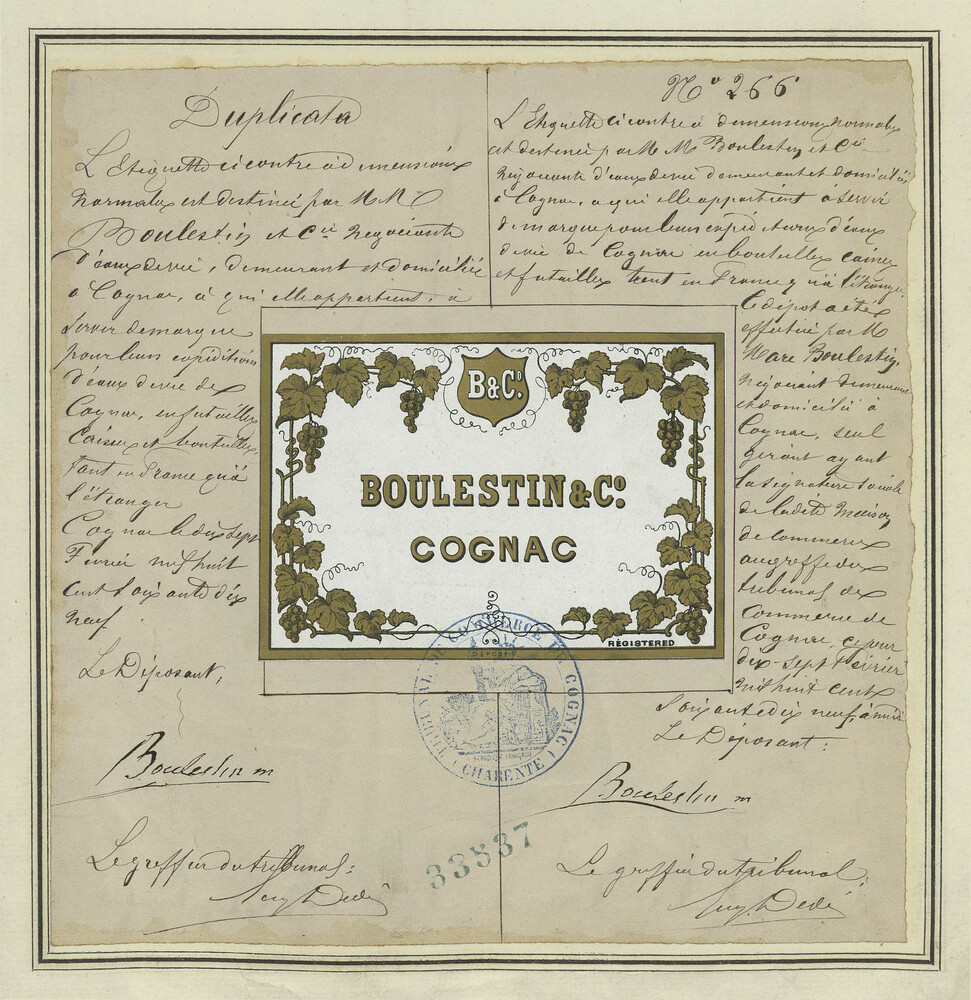 Duplicata
L'Etiquette ci contre à dimensions
normales est destinée par MM
Boulestin et Cie Négociants
d'eaux de vie, demeurant et domiciliés
à Cognac, à qui elle appartient, à
servir de marque
pour leurs expéditions
d'eaux de vie de
Cognac, en futailles
Caisses et bouteilles
tant en France qu'à
l'étranger
Cognac le dix sept
Février mil huit
cent soixante dix
neuf.
Le Déposant,
Boulestin m
Le greffier du tribunal:
Dedé
No 266
L'Etiquette ci contre à dimensions normales
est destinée par MM Boulestin et Cie
Négociants d'eaux de vie demeurant et domiciliés
à Cognac, à qui elle appartient à servir
de marque pour leurs expéditions d'eaux
de vie de Cognac en bouteilles caisses
et futailles tant en France qu'à l'étranger.
Le dépôt a été
effectué par M
Marc Boulestin,
Négociant demeurant
et domicilié à
Cognac, seul
gérant ayant
la signature sociale
de ladite Maison
de commerce
au greffe du
tribunal de
Commerce de
Cognac, ce jour
dix-sept Février
mil huit cent
soixante dix neuf, à midi
Le Déposant:
Boulestin m
Le greffier du tribunal:
Dedé
B & Co.
BOULESTIN & Co.
COGNAC
DÉPOSÉ
RÉGISTERED
TRIBUNAL DE COMMERCE DE COGNAC
(CHARENTE)
33837